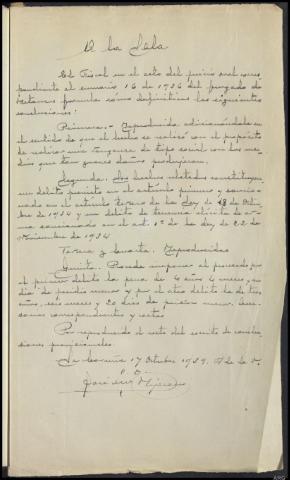 A la Sala
El Fiscal en el acto del juicio oral corres
pondiente al sumario 16 de 1936 del juzgado de
Betanzos formula como definitivas las siguientes
conclusiones:
Primera.- Reproducida adicionándola en
el sentido de que el hecho se realizó con el propósito
de realizar una venganza de tipo social con los me-
dios que tan graves daños produjeron.
Segunda. Los hechos relatados constituyen
un delito previsto en el artículo primero y sancio-
nado en el artículo tercero de la Ley de 18 de Octu-
bre de 1934 y un delito de tenencia ilícita de ar-
ma sancionado en el art. 1º de la ley de 22 de
Noviembre de 1934
Tercera y Cuarta. Reproducidas
Quinta. Procede imponer al procesado por
el primer delito la pena de 4 años 2 meses, un
día de presidio menor y por el otro delito la de tres
años, seis meses y 20 dias de prisión menor. Acce-
sorias correspondientes y costas
Por reproducido el resto del escrito de conclu-
siones provisionales.
La Coruña 17 Octubre 1939. Año de la V.
José Luis